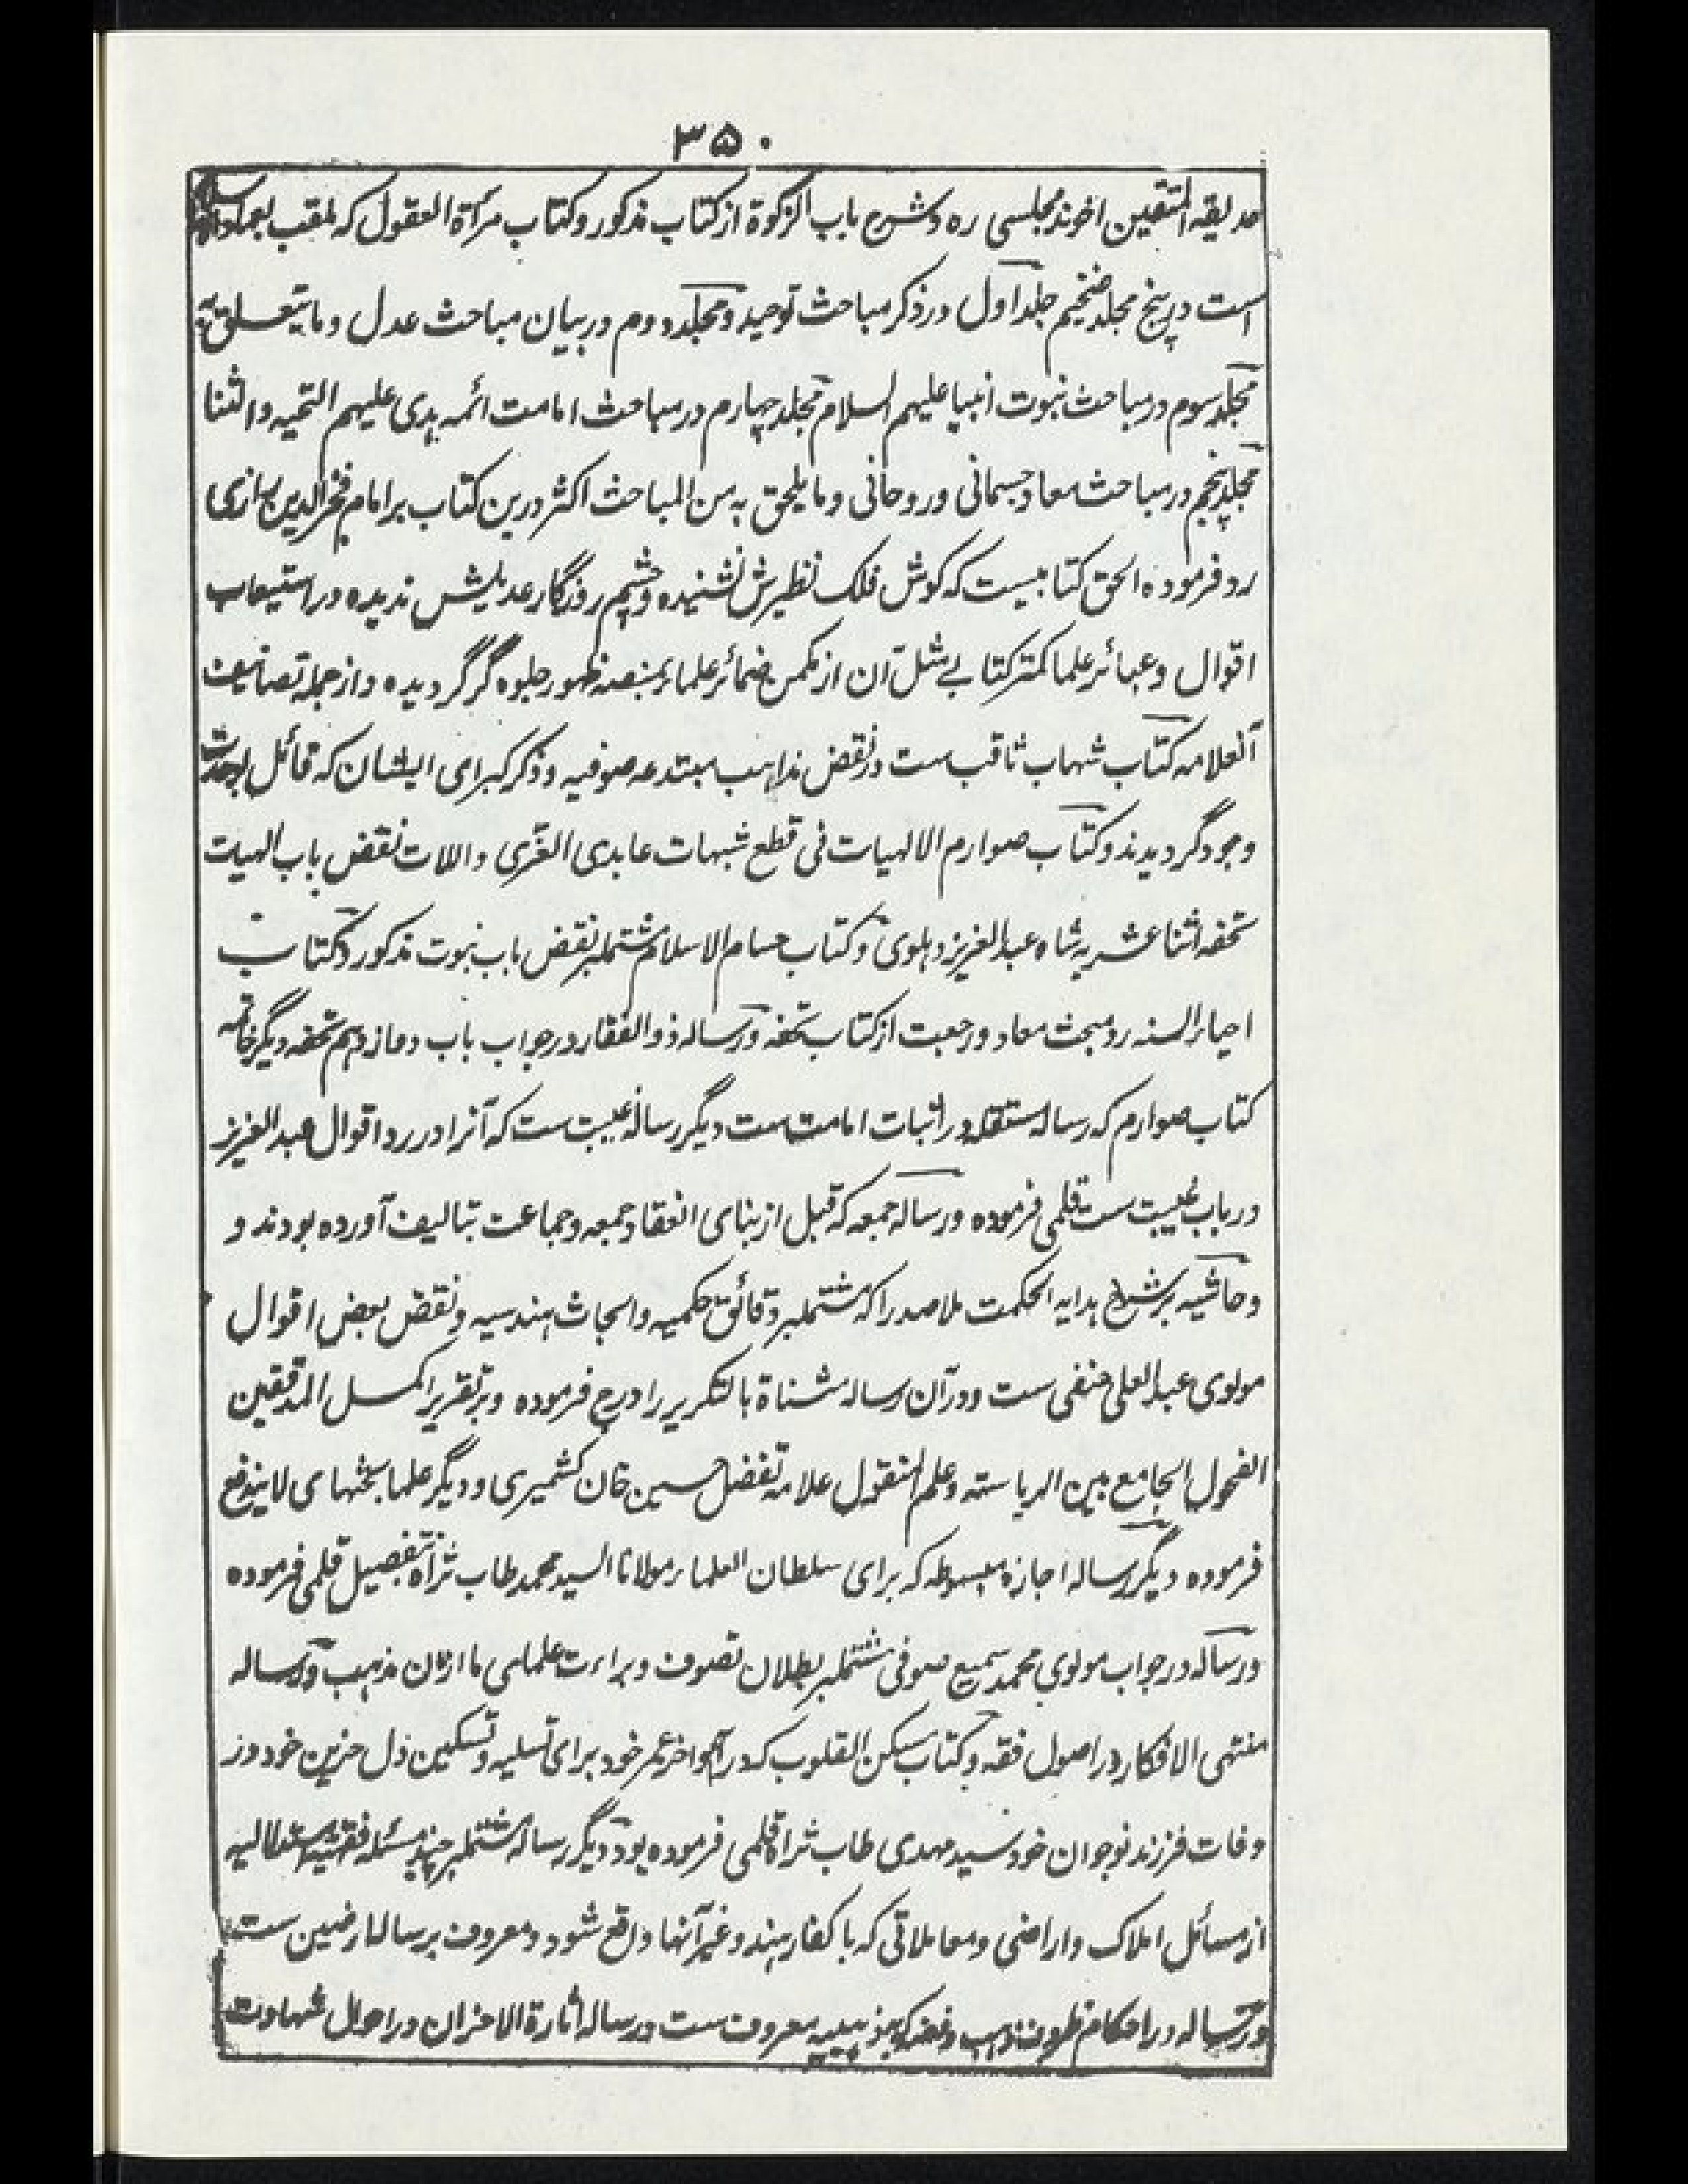 ۳۵۰
حدیقة المتقین اخوند مجلسی ره و شرح باب الزکوة از کتاب مذکور و کتاب مرآة العقول که ملقب بعماد الاسلام
است در پنج مجلد ضخیم جلد اول در ذکر مباحث توحید و مجلد دوم در بیان مباحث عدل و ما یتعلق به
مجلد سوم در مباحث نبوت انبیا علیهم السلام مجلد چهارم در مباحث امامت ائمه هدی علیهم التحیه و الثنا
مجلد پنجم در مباحث معاد جسمانی و روحانی و ما یلحق به من المباحث اکثر درین کتاب بر امام فخر الدین رازی
رد فرموده الحق کتابیست که کوش فلک نظیرش نشنیده و چشم روزگار عدیلش ندیده و در استیعاب
اقوال و عبائر علما کمتر کتابے مثل آن از مکمن ضمائر علماء بمنصه ظهور جلوه گر گردیده و از جمله تصانیف
آنعلامه کتاب شهاب ثاقب ست در نقض مذاهب مبتدعه صوفیه و ذکر کبرای ایشان که قائل بوحدت
وجود گردیدند و کتاب صوارم الالهیات فی قطع شبهات عابدی العزی و اللات نقض باب الهیت
تحفه اثنا عشریه شاه عبد العزیز دهلوی و کتاب حسام الاسلام مشتملبر نقض باب نبوت مذکور و کتاب
احیاء السنه رد مبحث معاد و رجعت از کتاب تحفه و رساله ذو الفقار در جواب باب دوازدهم تحفه دیگر خاتمه
کتاب صوارم که رساله مستقله در اثبات امامت ست دیگر رساله غیبت ست که آنرا در رد اقوال عبد العزیز
در باب غیبت ست قلمی فرموده و رساله جمعه که قبل از بنای انعقاد جمعه و جماعت بتالیف آورده بودند و
و حاشیه بر شرح هدایه الحکمت ملا صدرا که مشتملبر دقائق حکمیه و ابحاث هندسیه و نقض بعض اقوال
مولوی عبد العلی حنفی ست و در آن رساله مثناة بالتکریر را درج فرموده و بر تقریر اکمل المدققین
الفحول الجامع بین الریاسته و علم المنقول علامه تفضل حسین خان کشمیری و دیگر علما بحثهای لا یندفع
فرموده دیگر رساله اجازه مبسوطه که برای سلطان العلماء مولانا السید محمد طاب ثراه بتفصیل قلمی فرموده
و رساله در جواب مولوی محمد سمیع صوفی مشتملبر بطلان تصوف و براءت علمای ما ازان مذهب و رساله
منتهی الافکار در اصول فقه و کتاب مسکن القلوب که در اواخر عمر خود برای تسلیه و تسکین دل حزین خود در
وفات فرزند نوجوان خود سید مهدی طاب ثراه قلمی فرموده بود دیگر رساله مشتملبر چند مسئله فقهیه
از مسائل املاک و اراضی و معاملاتی که با کفار هند و غیر آنها واقع شود و معروف برساله ارضین ست
و رساله در احکام ظروف ذهب و فضه که بذهبیه معروف ست و رساله اثارة الاحزان در احوال شهادت